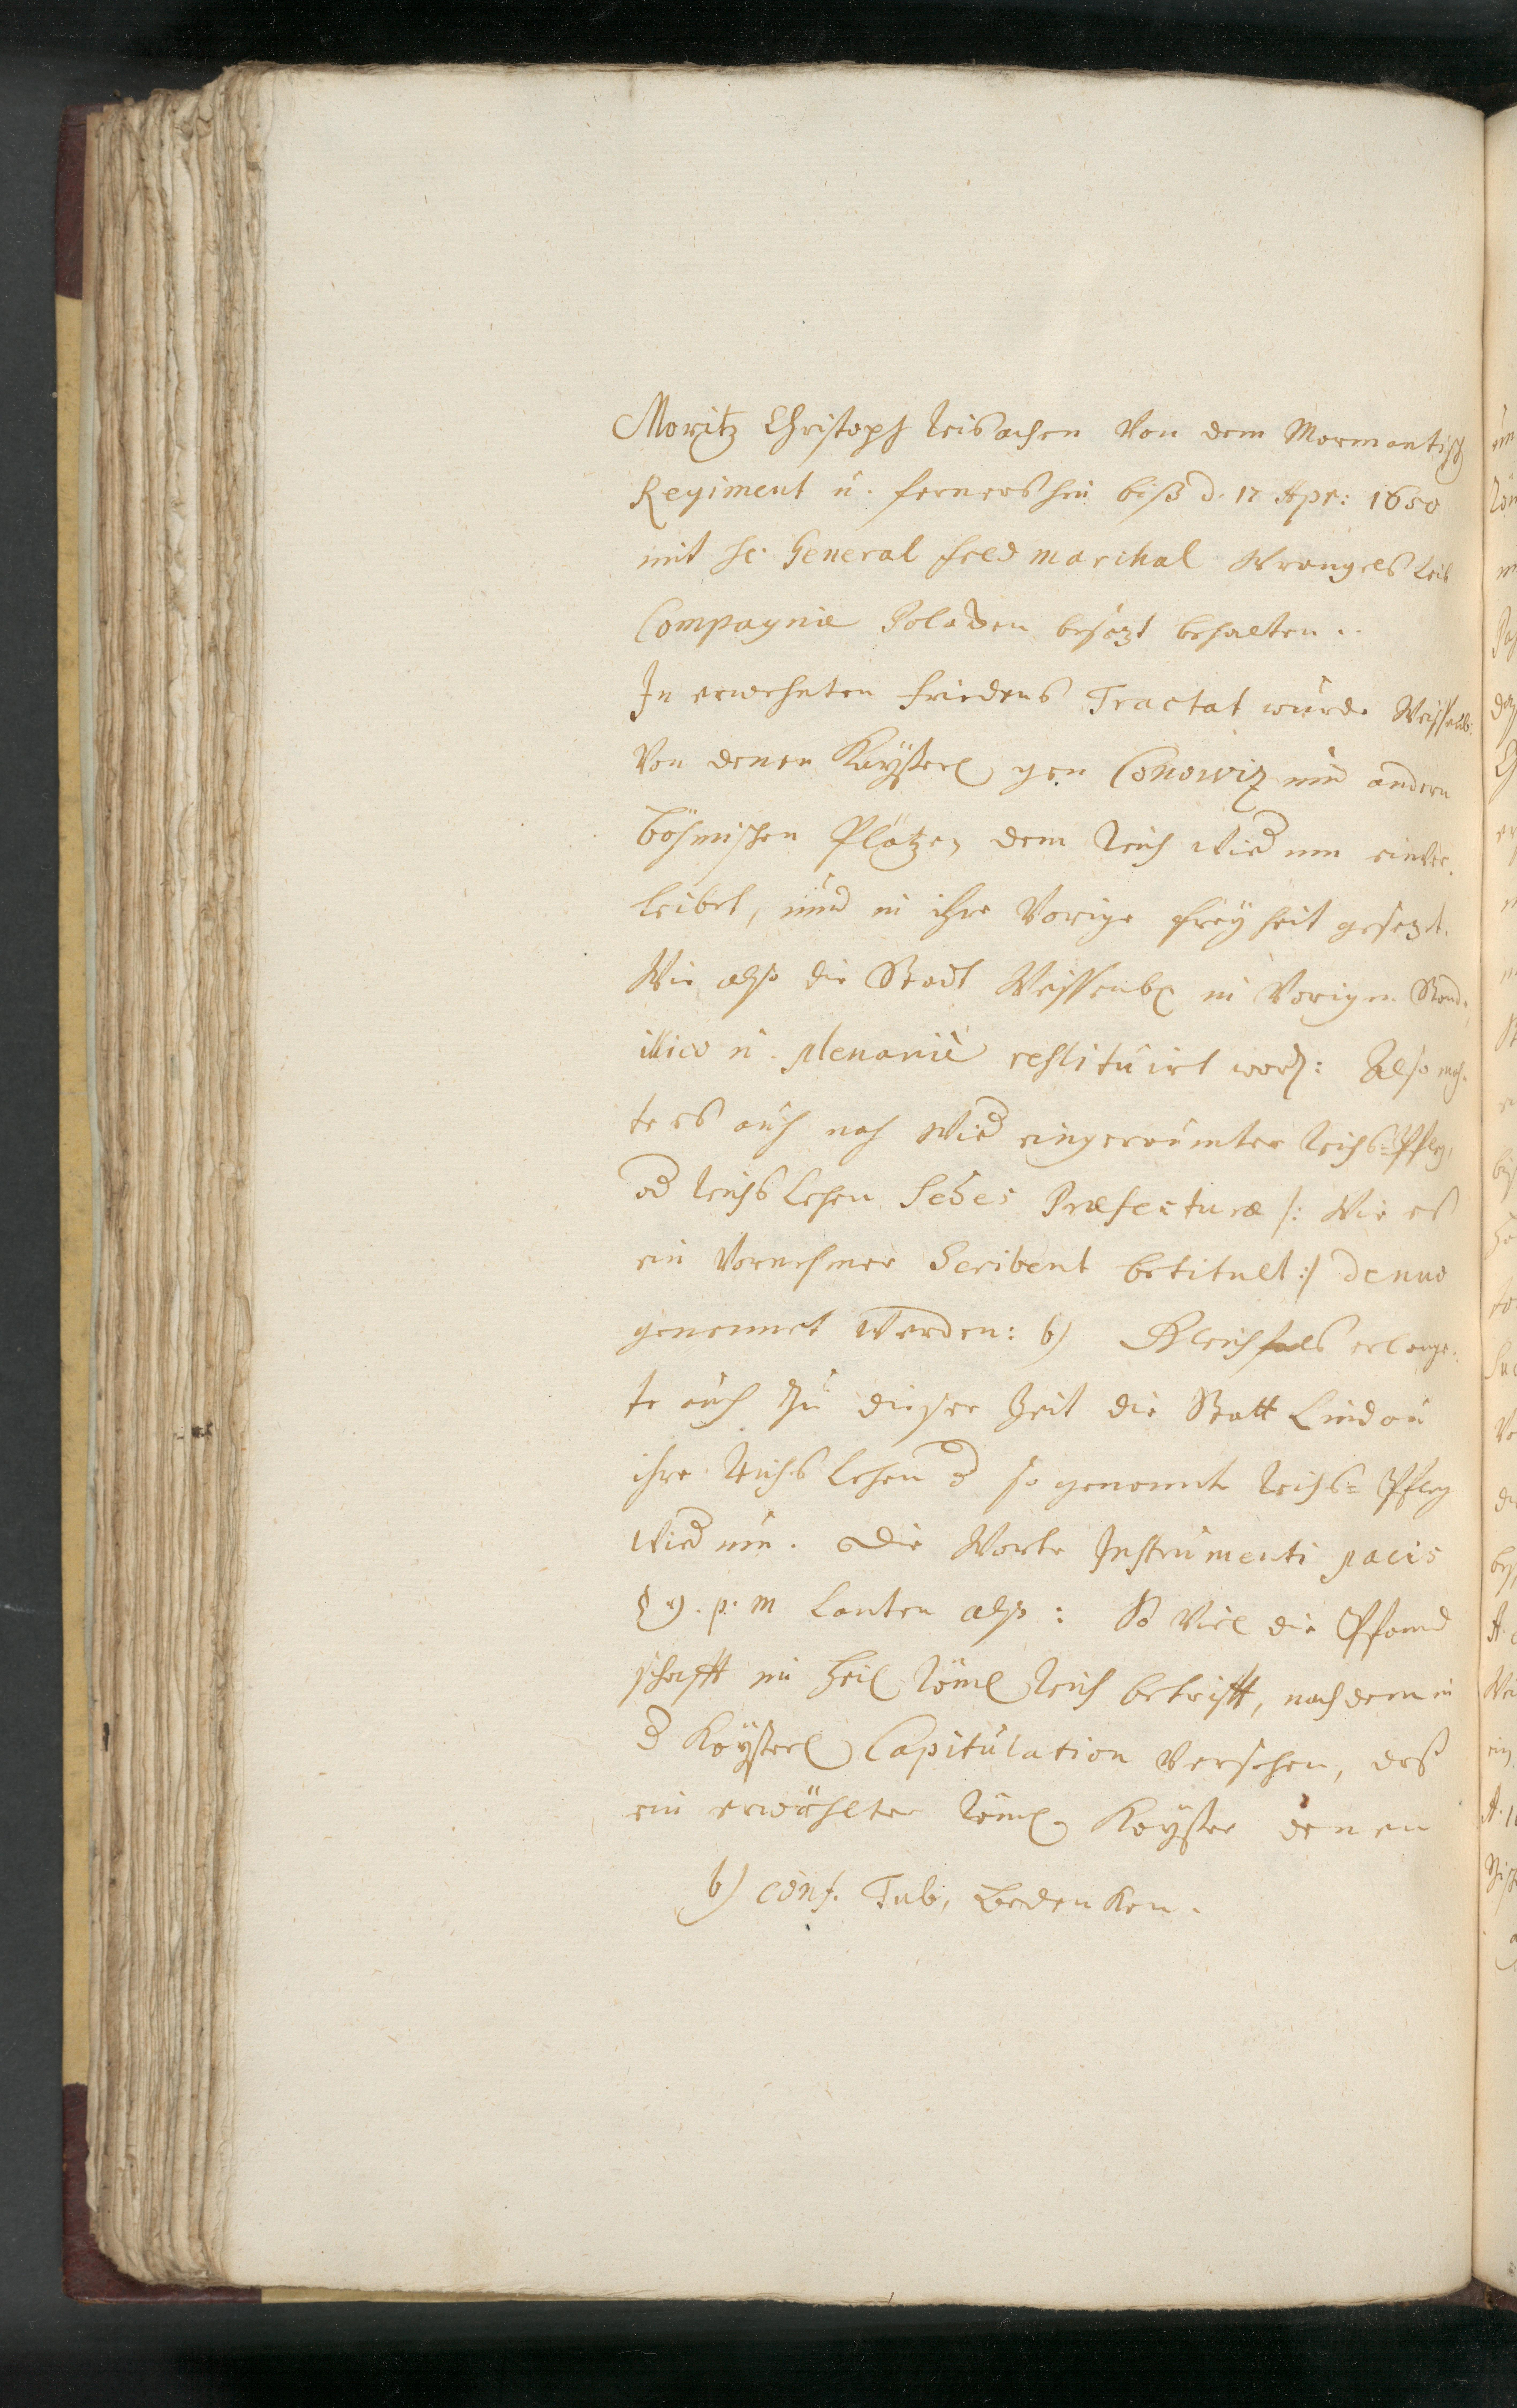 Moritz Christoph Reisachen von dem Mormantisch
Regiment u. fernershin biß d. 17 Apr: 1650
mit H. General Feld marchal Wrangels Leib
Compagnie besezt behalten..
In erwehnten Friedens Tractat wurde Weissenb:
Von denen Kayserl gen Conowiz und andern
böhmischen Plätzen dem Reich wied um einver-
leibet, und in ihre Vorige freyheit gesezt.
Wie also die Stadt Weissenb in Vorigen Stand,
illico u. plenariè restituirt word: Also moch-
te es auch nach wied eingeraumter Reichs-Pfleg,
od Reichslehen Sedes Præfecturæ /: Wie es
ein Vornehmer Scribent betitult :/ denuo
genennet werden: b) Gleichfals erlang-
te auch zu dieser Zeit die Statt Lindau
ihre Reichs Lehen d so genannte Reichs- Pfleg
wied um. Die Worte Instrumenti pacis
§ 9. p. m Lauten also: So Viel die Pfand
schafft im Heil Röml Reich betrifft, nach dem in
d Kayserl Capitulation Versehen, daß
ein erwählter Röml Kayser denen
b) conf. Tub, Bedenken.